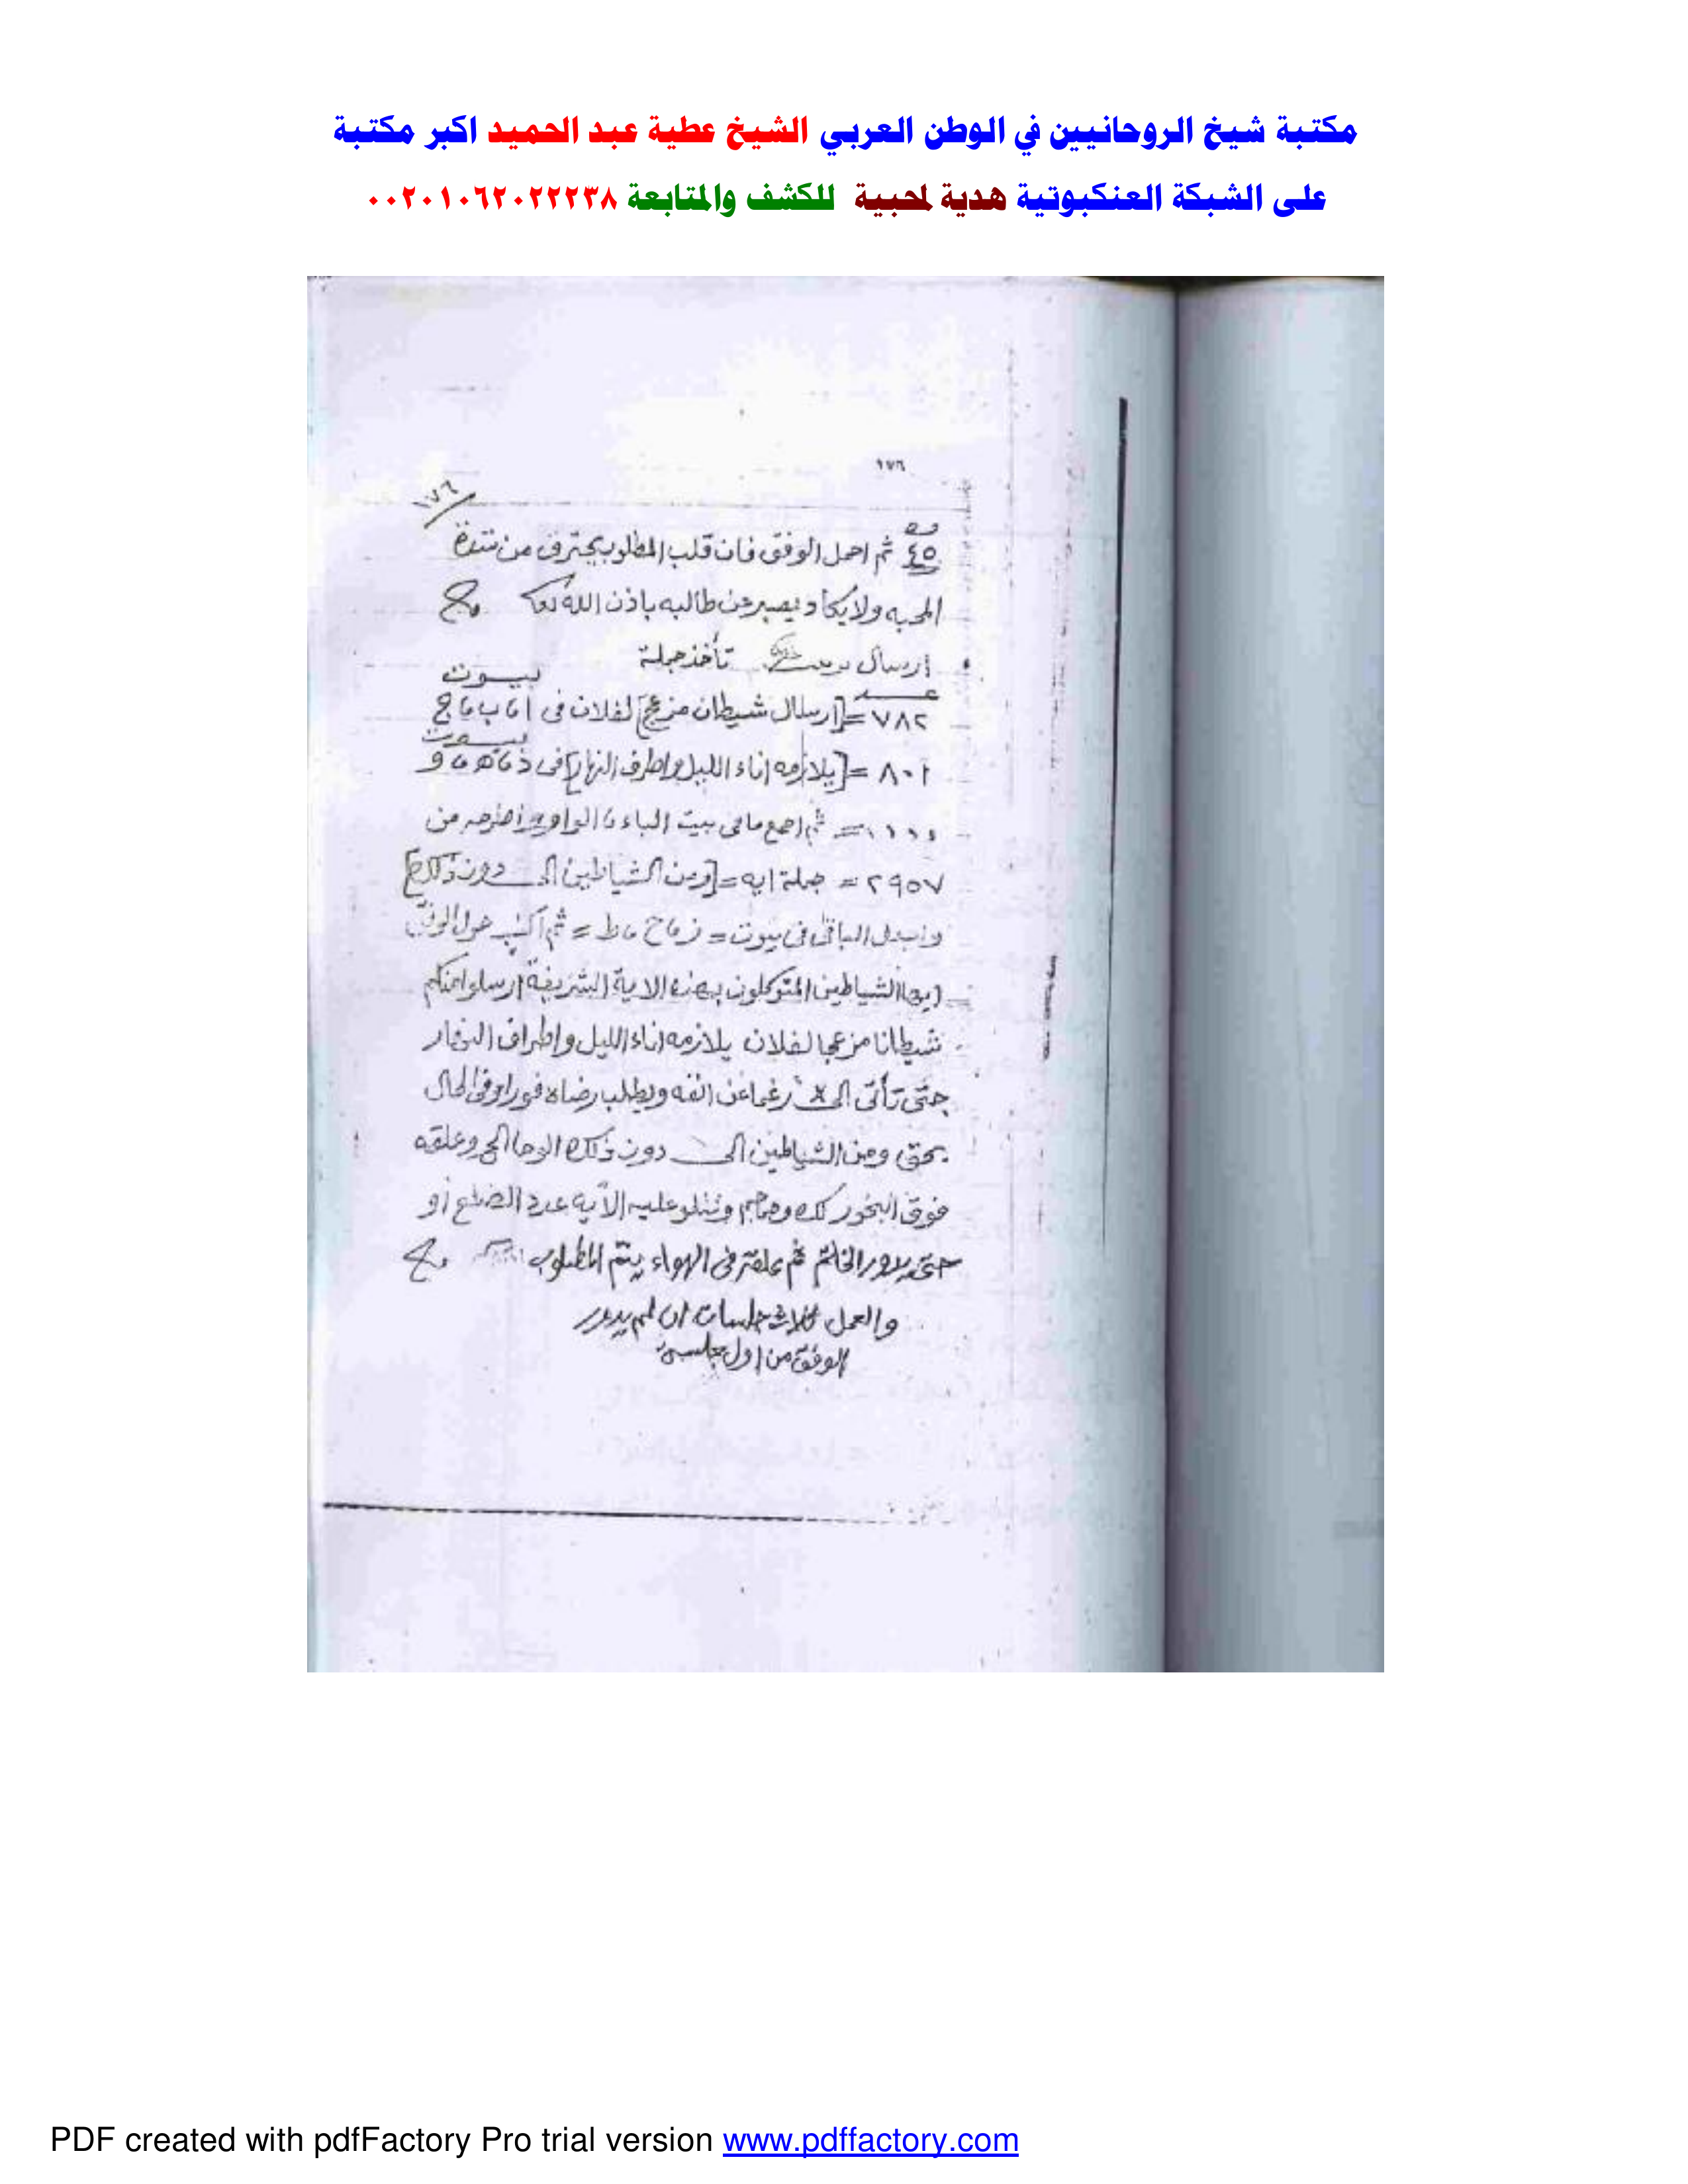 مكتبة شيخ الروحانيين في الوطن العربي الشيخ عطية عبد الحميد اكبر مكتبة
على الشبكة العنكبوتية هدية لمحبية للكشف والمتابعة ٠٠٢٠١٠٦٢٠٢٢٢٣٨
١٧٦
١٧٦
٤٥ ثم احمل الوفق فان قلب المطلوب يحترق من شدة
المحبه ولا يكاد يصبر عن طالبه باذن الله
ارسال تأخذ جملة
عدد بيوت
٧٨٢ = [ارسال شيطان مزعج لفلان] فى ا ، ب ، ج
بيوت
٨٠١ = [يلازمه اناء الليل واطراف النهار] فى د ، ه ، و
= ثم اجمع ما فى بيت الباء ، الواو من
٢٩٥٧ = جملة ايه = [ومن الشياطين الى دون ذلك]
الباقى فى بيوت = ز ، ح ، ط = ثم اكتب حول الوفق
= ايها الشياطين المتوكلون بهذه الاية الشريفة ارسلوا منكم
شيطانا مزعجا لفلان يلازمه اناء الليل واطراف النهار
حتى تأتى الى رغما عن انفه ويطلب رضاه فورا وفى الحال
بحق ومن الشياطين الى دون ذلك الوحا الخ وعلقه
فوق البخور وتتلو عليه الآيه عدد الضلع او
حتى يدور الخاتم ثم علقه فى الهواء يتم المطلوب
والعمل ثلاث جلسات ان لم يدور
الوفق من اول جلسة
PDF created with pdfFactory Pro trial version www.pdffactory.com